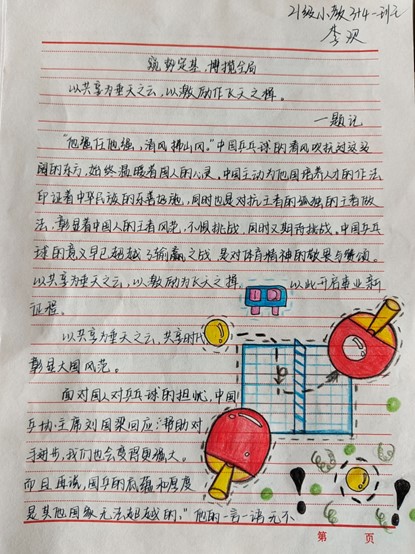 21级小教3+4一班
李汉
筑势定基,博揽全局
以共享为垂天之云,以激励作飞天之梯。
—题记
“他强任他强,清风拂山冈。”中国乒乓球的清风吹拂过这辽
阔的东方,始终温暖着国人的心灵,中国主动为他国培养人才的作法
印证着中华民族的友善好施,同时也是对抗王者的孤独的王者做
法,彰显着中国人的王者风范,不惧挑战,同时又期待挑战,中国乒乓
球的意义早已超越了输赢之战,是对体育精神的敬畏与赞颂。
以共享为垂天之云,以激励为飞天之梯,以此开启事业新
征程。
以共享为垂天之云,共享时代
彰显大国风范。
面对国人对乒乓球的担忧,中国
乒协主席刘国梁回应:“帮助对
手进步,我们也会变得更强大。
而且再说,国乒的底蕴和厚度
是其他国家无法超越的。”他的一言一语无不
第 页